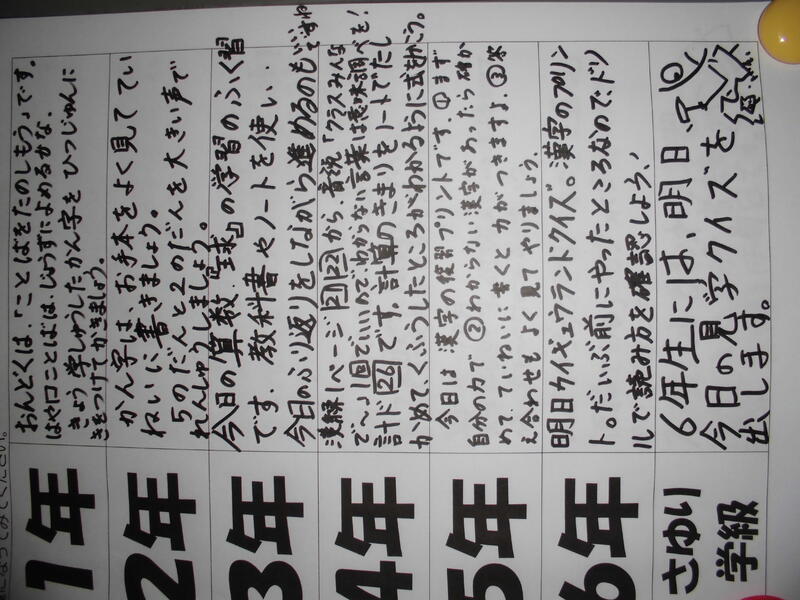 になってみてください。
1年
おんどくは、「ことばをたのしもう」です。
はや口ことばは、じょうずによめるかな。
きょう学しゅうしたかん字をひつじゅんに
きをつけてかきましょう。
2年
かん字は、お手本をよく見ててい
ねいに書きましょう。
5のだんと2のだんを大きい声で
れんしゅうしましょう。
3年
今日の算数「球」の学習のふく習
です。教科書やノートを使い、
今日のふり返りをしながら進めるのもいいですね
4年
漢練1ページ 21 22 から、音読「クラスみんな
で〜」1回でいいのでわからない言葉は意味調べを!
計ド 26 です。計算のきまりをノートでたし
かめて、くふうしたところがわかるように式をかこう。
5年
今日は漢字の復習プリントです。①まず
自分の力で②わからない漢字があったら確か
めて、ていねいに書くと力がつきますよ。③答
え合わせもよく見てやりましょう。
6年
明日ウイギュウランドクイズ。漢字のプリン
ト。だいぶ前にやったところなので、ドリ
ルで読み方を確認しよう、
さゆり
学級
6年生には、明日、
今日の見学クイズを
出します。